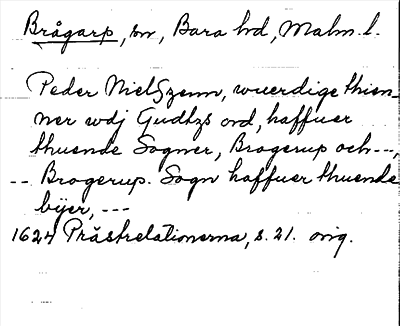 Brågarp, sn, Bara hd, Malm. l.
Peder Nielszenn, wuerdige thien-
ner wdj Gudhzs ord, haffuer
thuende Sogner, Brogerup och ---,
-- Brogerup. Sogn haffuer thuende
bÿer, ---
1624 Prästrelationerna, s. 21. orig.